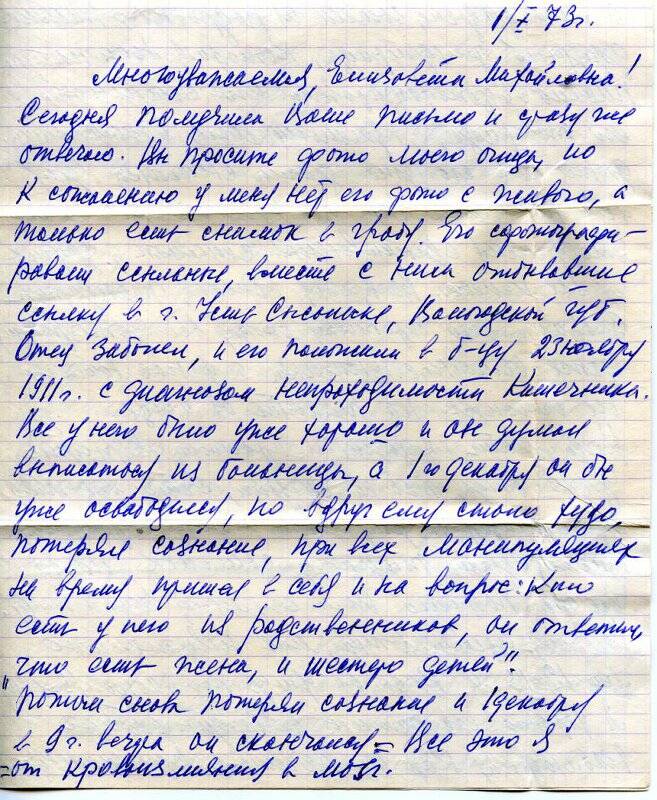 1/X 73г.
Многоуважаемая, Елизавета Михайловна!
Сегодня получила Ваше письмо и сразу же
отвечаю. Вы просите фото моего отца, но
к сожалению у меня нет его фото с живого, а
только есть снимок в гробу. Его сфотографи-
ровали ссыльные, вместе с ним отбывавшие
ссылку в г. Усть Сысольске, Вологодской губ.
Отец заболел, и его положили в б-цу 23 ноября
1911 г. с диагнозом непроходимости кишечника.
Все у него было уже хорошо и он думал
выписаться из больницы, а 1го декабря он бы
уже освободился, но вдруг ему стало худо,
потерял сознание, при всех манипуляциях
на время пришел в себя и на вопрос: Кто
есть у него из родственников, он ответил,
"что есть жена, и шестеро детей".
Потом снова потерял сознание и 1 декабря
в 9 г. вечера он скончался = Все это я
=от кровоизлияния в мозг.